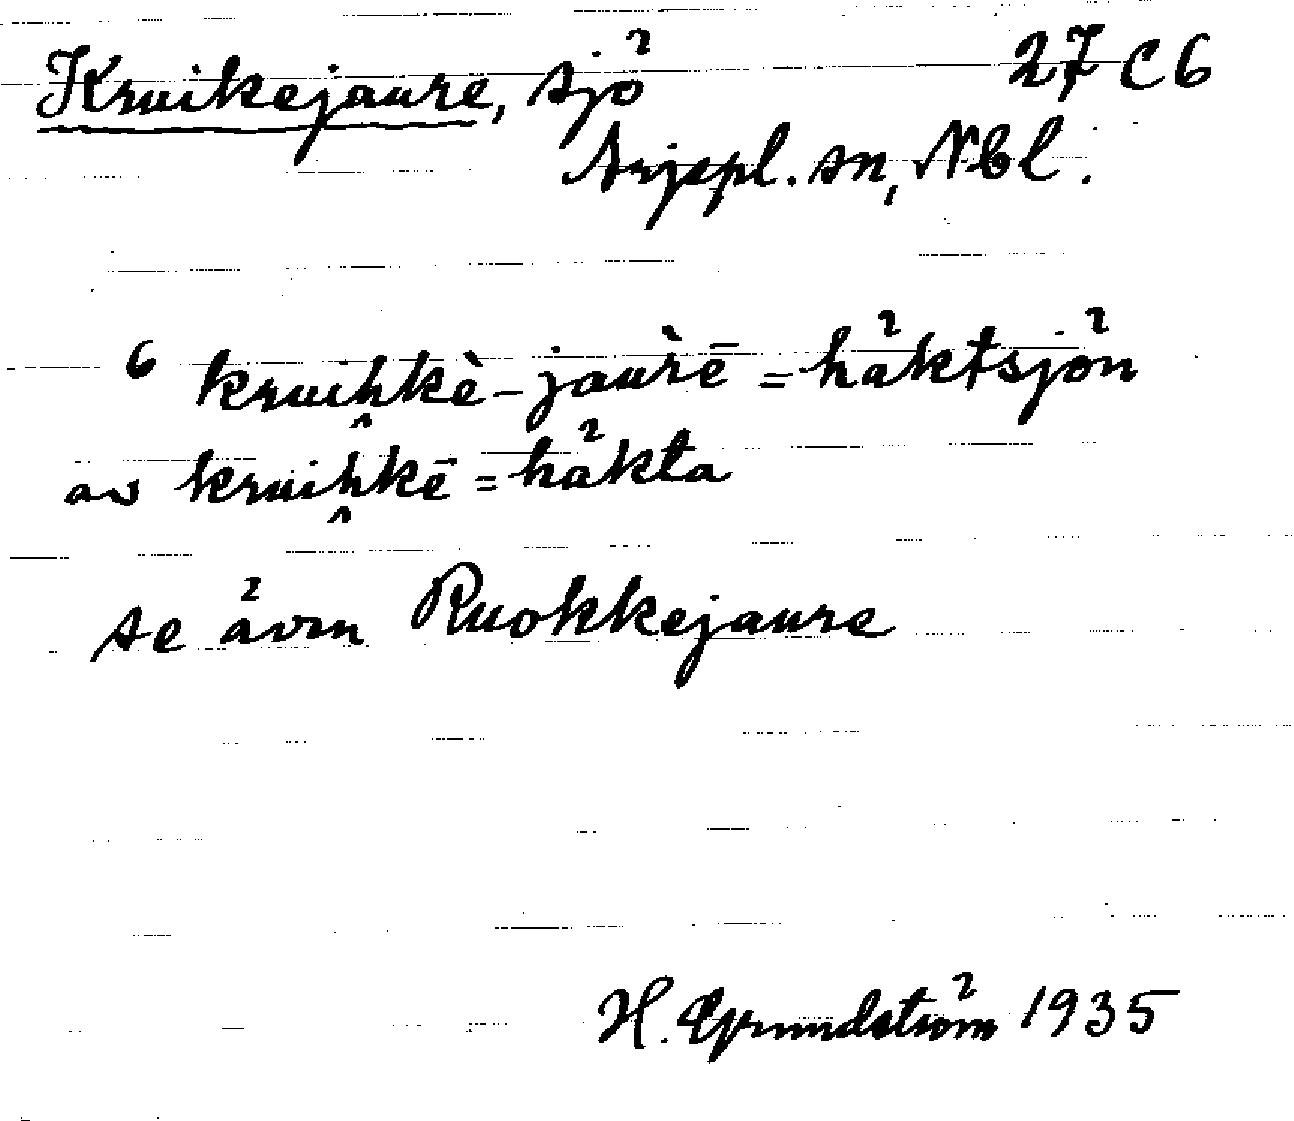 Kruikejaure, sjö 27 C 6
Arjepl. sn, Nbl.
6 kruiḫkè-jaùrē = häktsjön
av kruiḫkē = häkta
se även Ruokkejaure
H. Grundström 1935